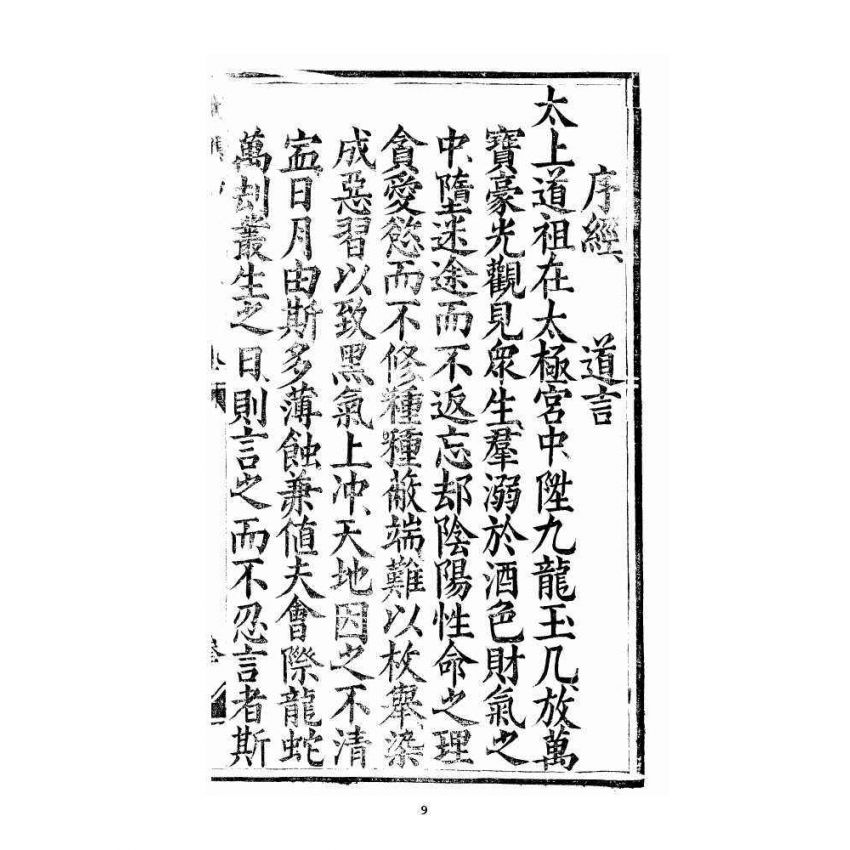 序經　道言
太上道祖在太極宮中陞九龍玉几放萬
寶豪光觀見衆生羣溺於酒色財氣之
中墮迷途而不返忘却陰陽性命之理
貪愛慾而不修種種蔽端難以枚舉染
成惡習以致黑氣上冲天地因之不清
寍日月由斯多薄蝕兼值夫會際龍蛇
萬刦叢生之日則言之而不忍言者斯
9